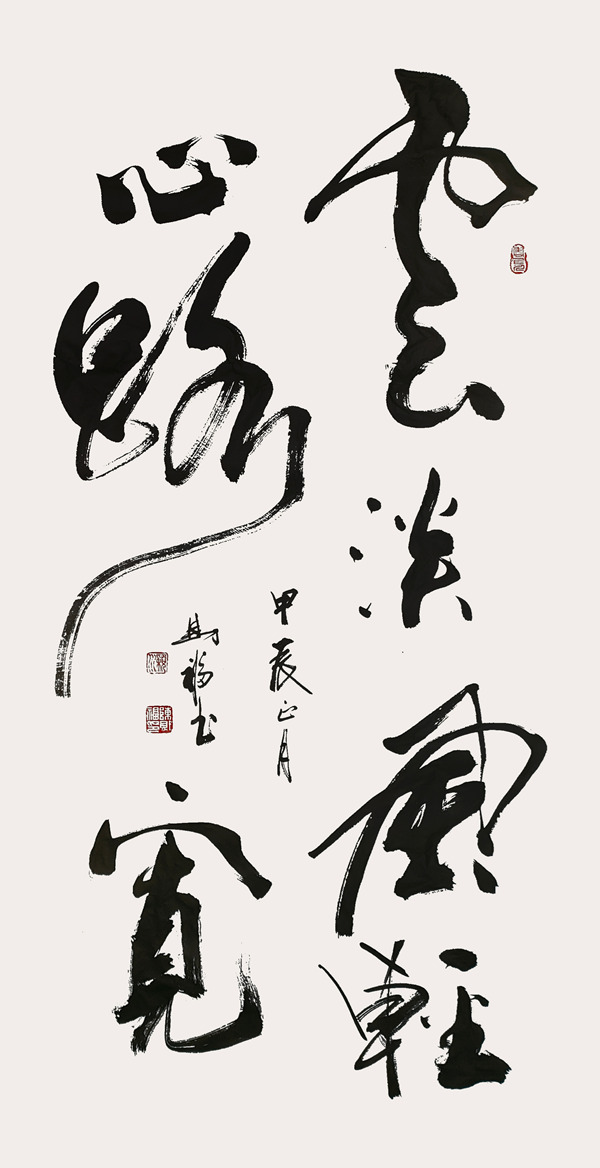 雲淡風輕
心路寬
甲辰正月
福书